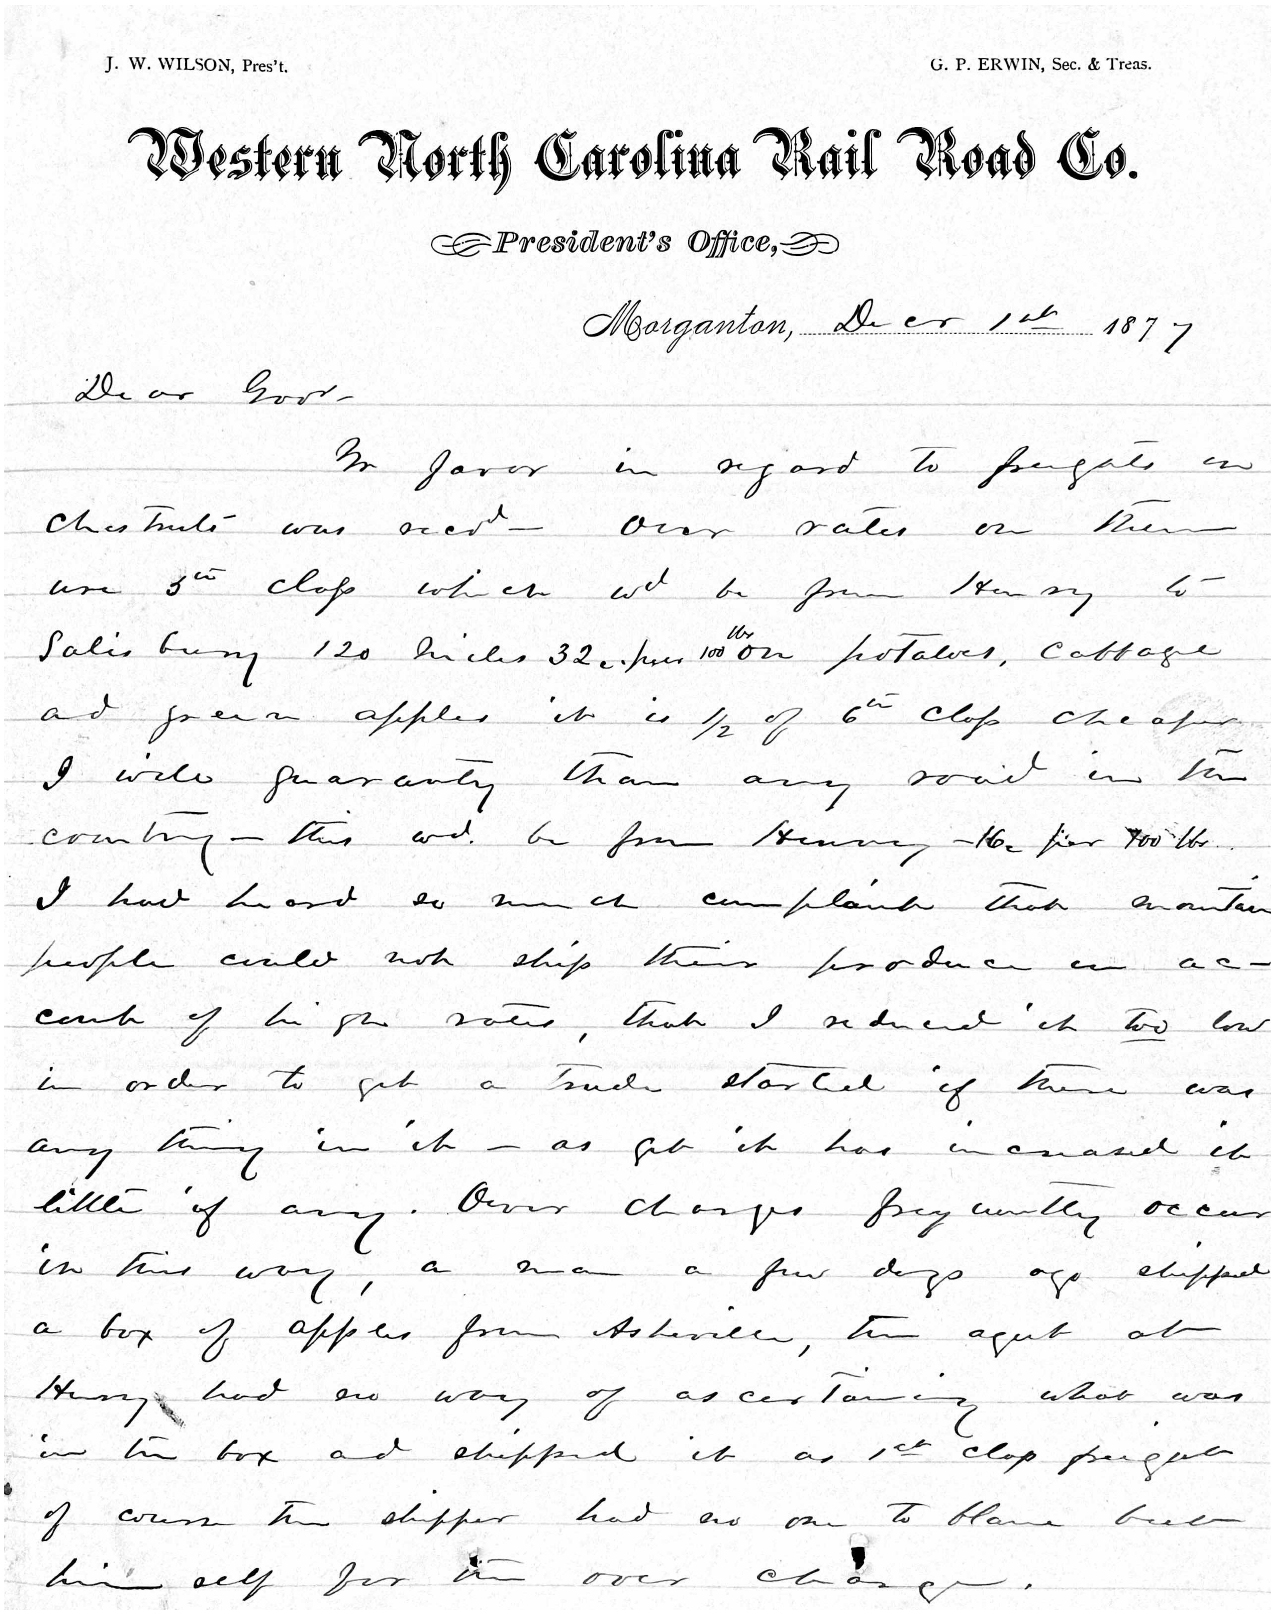 J. W. WILSON, Pres't.
G. P. ERWIN, Sec. & Treas.
Western North Carolina Rail Road Co.
President's Office,
Morganton, Decr 1st 1877
Dear Govr-
Yr favor in regard to freights on
chestnuts was recd- Over rates on them
are 5th class which wd be from Henry to
Salisbury 120 miles 32c. per 100 lbs on potatoes, cabbage
and green apples it is 1/2 of 6th class cheaper
I will guaranty than any road in the
country - this wd. be from Henry - 16c per 100 lbs.
I had heard so much complaint that mountain
people could not ship their produce on ac-
count of high rates, that I reduced it too low
in order to get a trade started if there was
any thing in it - as yet it has increased it
little if any. Over charges frequently occur
in this way, a man a few days ago shipped
a box of apples from Asheville, the agent at
Henry had no way of ascertaining what was
in the box and shipped it as 1st class freight
of course the shipper had no one to blame but
him self for the over charge.